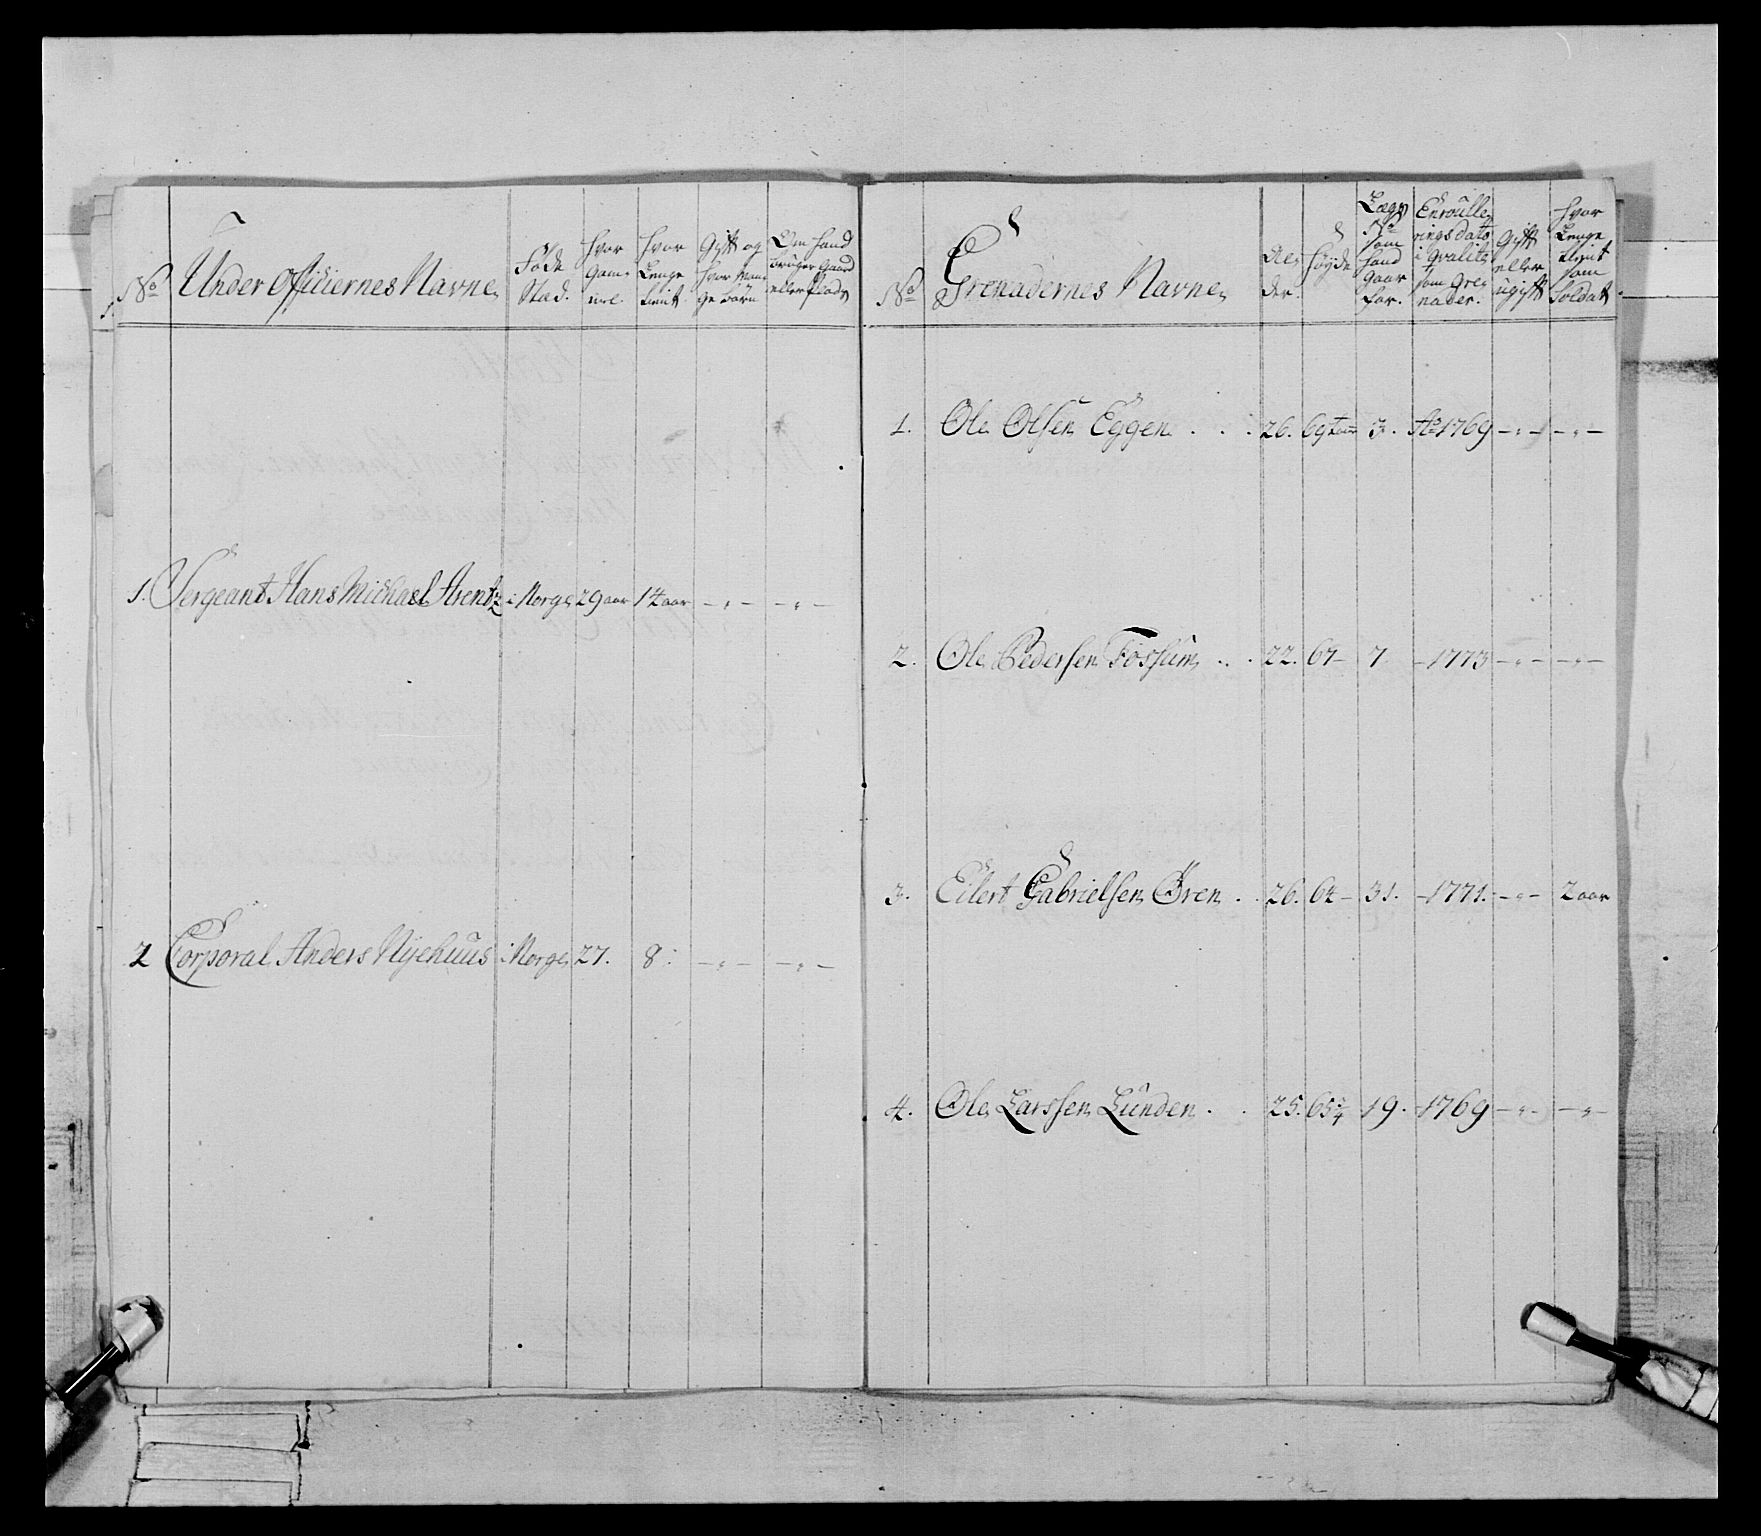 No
Under Officiernes Navne
Føde
Stad.
hvor
gam-
mel
hvor
Lenge
tient
Gift og
hvor man-
ge Børn
Om hand
bruger Gaard
eller Plads
1. Sergeant Hans Michael Arentz i Norge 29 aar 14 aar - " - - " -
2 Corporal Anders Nyehuus i Norge 27. 8: - " - - " -
No
Grenadernes Navne
Al-
der.
Høyde
Lægs
No
som
hand
gaar
for.
Enroulle-
rings dato
i Qvalite
som Gre-
nader.
Gift
eller
ugift
hvor
Lenge
tient
som
Soldat
1. Ole Olsen Eggen . . . 26. 69 Tom 3. Ao 1769 - " - - " -
2. Ole Pedersen Fossum . . 22. 67 - 7 - 1773 - " - - " -
3. Eilert Gabrielsen Øren . . 26. 64 - 31. - 1771. - " - 2 aar
4. Ole Larssen Lunden . . 25. 65 3/4 19. - 1769 - " - - " -